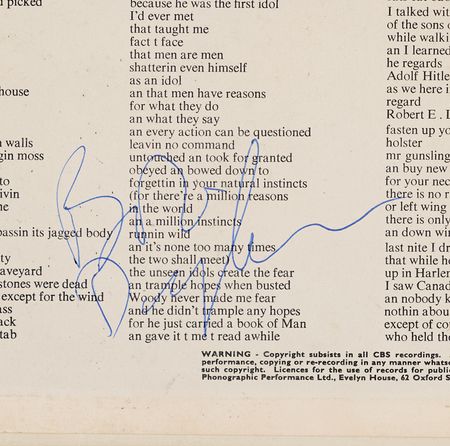 picked
house
walls
gin moss
to
ivin
ne
passin its jagged body
ty
aveyard
stones were dead
except for the wind
ass
ack
tab
because he was the first idol
I'd ever met
that taught me
fact t face
that men are men
shatterin even himself
as an idol
an that men have reasons
for what they do
an what they say
an every action can be questioned
leavin no command
untouched an took for granted
obeyed an bowed down to
forgettin your natural instincts
(for there're a million reasons
in the world
an a million instincts
runnin wild
an it's none too many times
the two shall meet)
the unseen idols create the fear
an trample hopes when busted
Woody never made me fear
and he didn't trample any hopes
for he just carried a book of Man
an gave it t me t read awhile
Bob Dylan
I talked wit
of the sons o
while walki
an I learned
he regards
Adolf Hitle
as we here i
regard
Robert E. L
fasten up yo
holster
mr gunsling
an buy new
for your nec
there is no r
or left wing
there is only
an down win
last nite I dr
that while he
up in Harlen
I saw Canad
an nobody k
nothin about
except of co
who held the
WARNING - Copyright subsists in all CBS recordings.
performance, copying or re-recording in any manner whatso
such copyright. Licences for the use of records for publi
Phonographic Performance Ltd., Evelyn House, 62 Oxford S